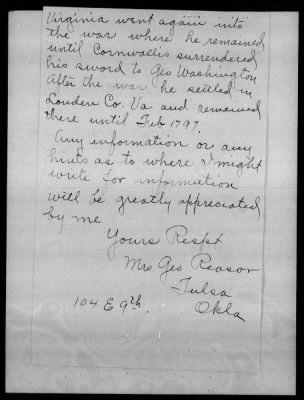 Virginia went again into
the war where he remained
until Cornwallis surrendered
his sword to Geo Washington
After the war he settled in
Louden Co. Va and remained
there until Feb 1797.
Any information or any
hints as to where I might
write for information
will be greatly appreciated
by me
Yours Respt
Mrs Geo Reasor
Tulsa
104 E 9th. Okla